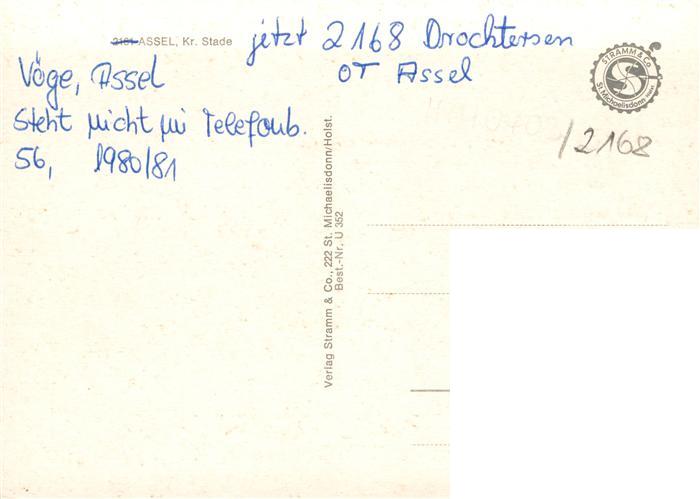 2161 ASSEL, Kr. Stade
jetzt 2168 Drochtersen
OT Assel
Vöge, Assel
Steht nicht im Telefonb.
56, 1980/81
STRAMM & Co.
St. Michaelisdonn
/2168
Verlag Stramm & Co., 222 St. Michaelisdonn/Holst.
Best.-Nr. U 352